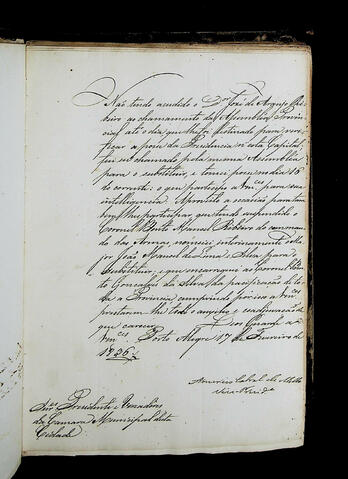 Não tendo acudido o Dor José de Araujo Ri-
beiro ao chamamento da Assemblea Provin-
cial até o dia que lhe foi destinado para veri-
ficar a posse da Presidencia n'esta Capital,
fui eu chamado pela mesma Assemblea
para o substituir, e tomei posse no dia 15
do corrente: o que participo a Vmces para sua
intelligencia. Aproveito a occasião para tam-
bem lhes participar, que tendo suspendido o
Coronel Bento Manoel Ribeiro do comman-
do das Armas nomeei interinamente o Ma-
jor João Manoel de Lima e Silva para o
substituir, e que encarreguei ao Coronel Bento
Gonçalves da Silva da pacificação de to-
da a Provincia cumprindo por isso a Vmces
prestarem-lhe todo o auxilio, e coadjuvação de
que carecer. Deos Guarde a
Vmces Porto Alegre 19 de Fevereiro de
1836
Americo Cabral de Mello
Vice Preside
Snres Presidente e Vereadores
da Camara Municipal desta
Cidade